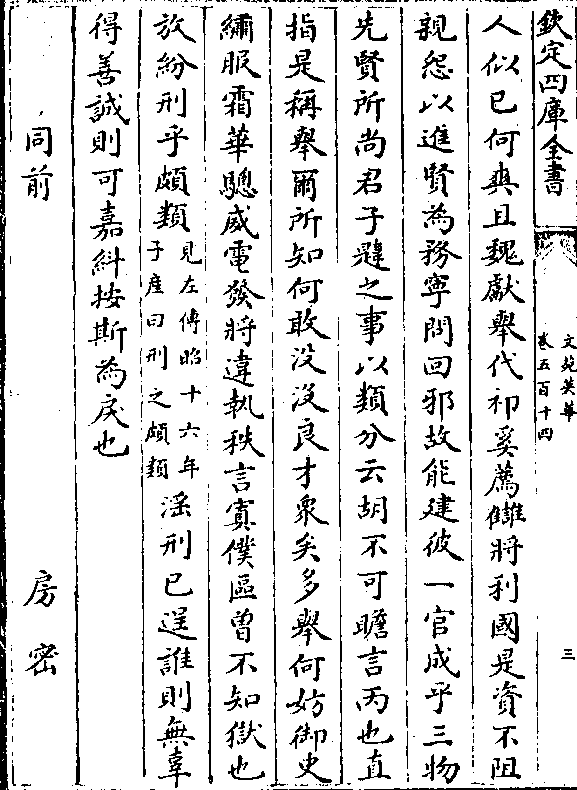 欽定四庫全書
文苑英華
卷五百十四
三
人似已何爽且魏獻舉代祁奚薦讎將利國是資不阻
親怨以進賢為務寧問回邪故能建彼一官成乎三物
先賢所尚君子韙之事以類分云胡不可瞻言丙也直
指是稱舉爾所知何敢没没良才衆矣多舉何妨御史
繡服霜華驄威電發將違執秩言寘僕區曾不知獄也
放紛刑乎頗類見左傳昭十六年子産曰刑之頗類淫刑已逞誰則無辜
得善誠則可嘉糾按斯為戾也
同前
房密